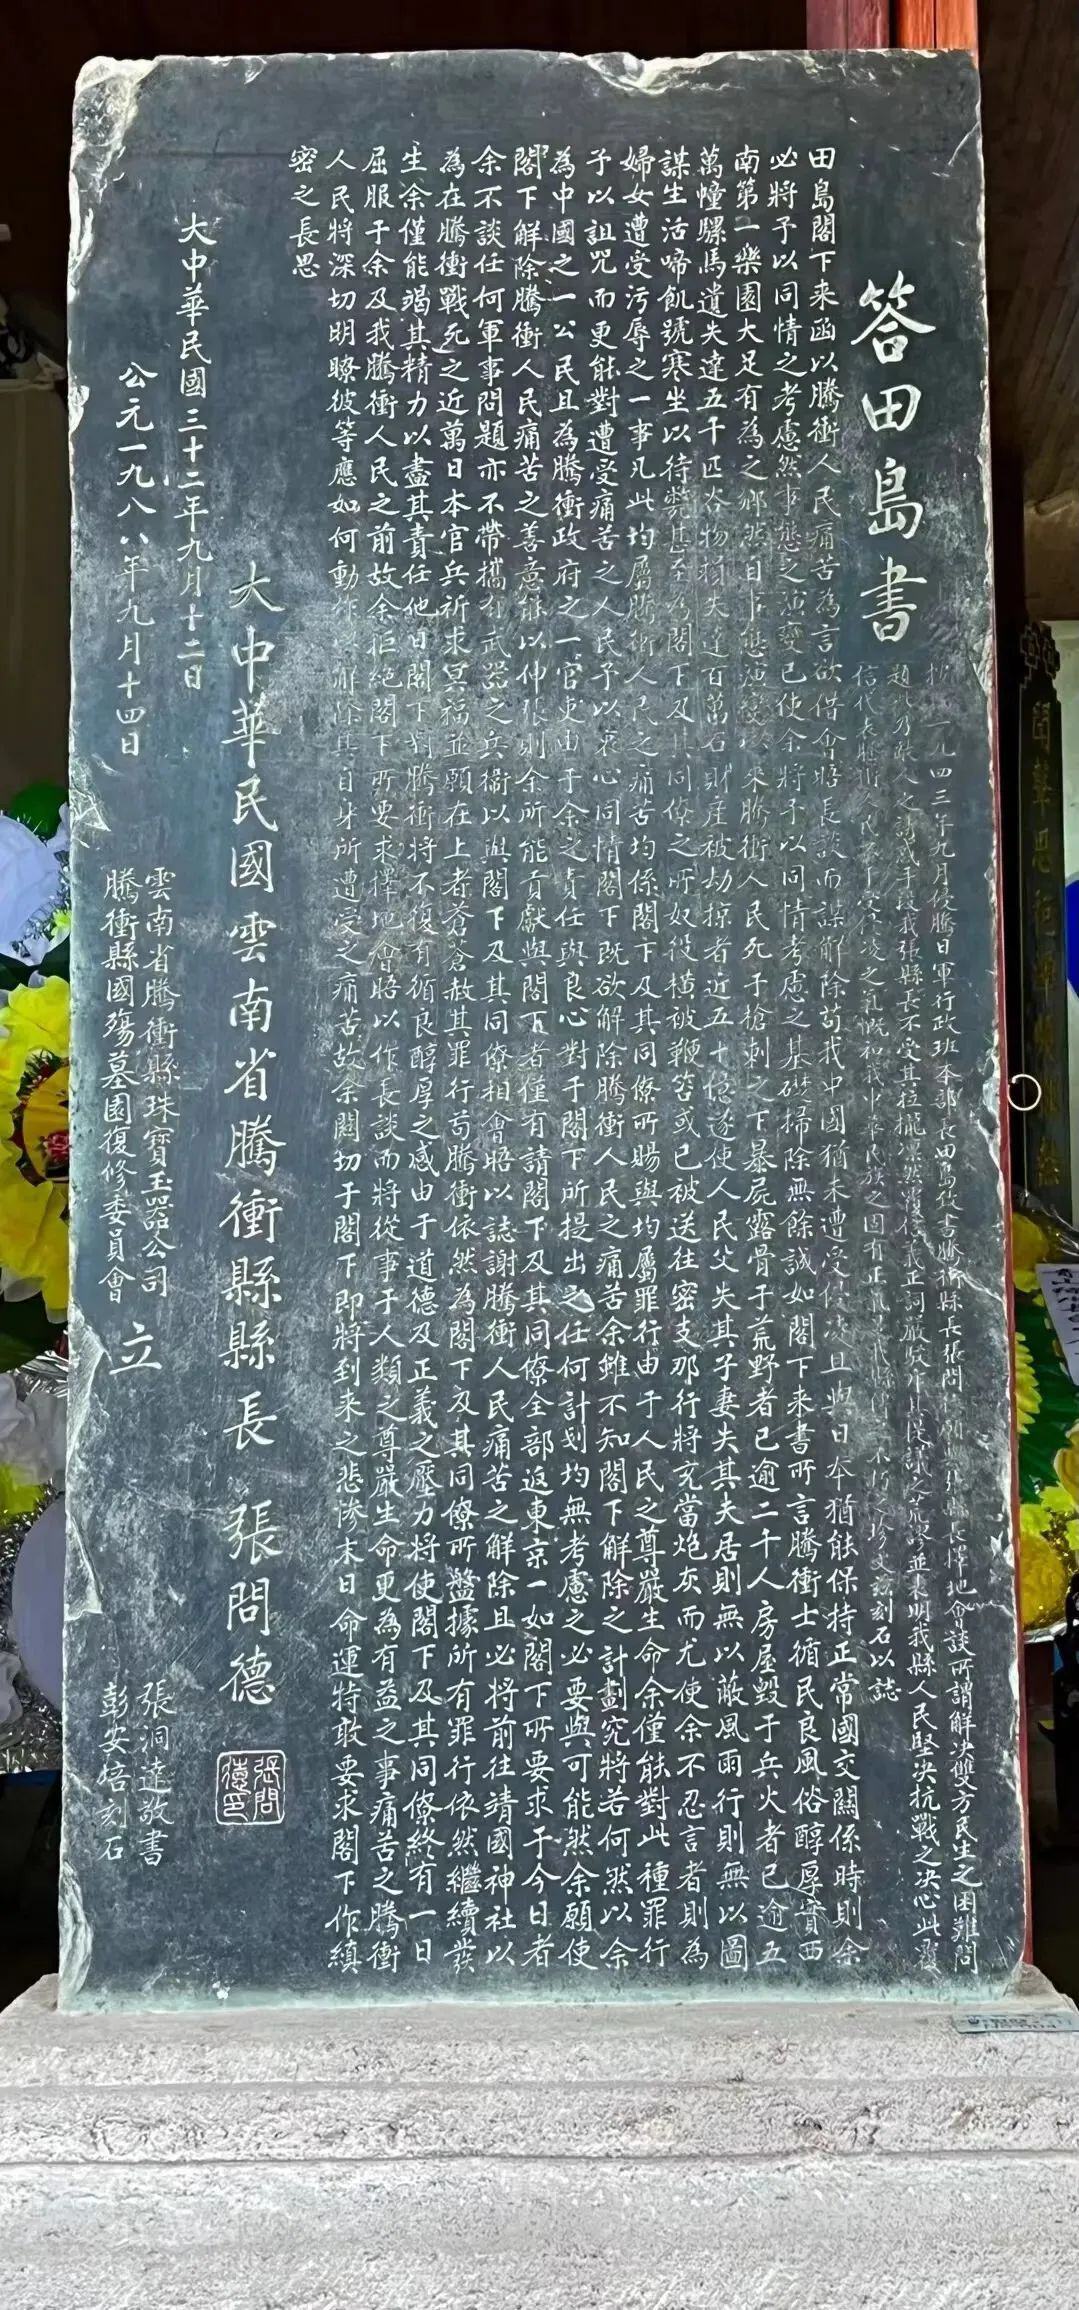 答田島書
一九四三年九月侵騰日軍行政班本部長田島致書騰衝縣長張問 張縣長擇地會談所謂解决雙方民生之困難問
題此乃敵人之誘惑手段我張縣長不受其拉攏凛然覆信義正詞嚴駁斥其 之荒謬並表明我縣人民堅決抗戰之决心此覆
信代表騰衝人民不 凌之氣慨和我中華民族之固有正氣 不朽之珍文玆刻石以誌
田島閣下来函以騰衝人民痛苦為言欲借會晤長談而謀解除苟我中國猶未遭受侵凌且與日本猶能保持正常國交關係時則余
必將予以同情之考慮然事態之演變已使余將予以同情考慮之基礎掃除無餘誠如閣下来書所言騰衝士循民良風俗醇厚實西
南第一樂園大足有為之鄉然自事態演變以來騰衝人民死于槍刺之下暴屍露骨于荒野者已逾二千人房屋毀于兵火者已逾五
萬幢騾馬遺失達五千匹谷物損失達百萬石財産被劫掠者近五十億遂使人民父失其子妻失其夫居則無以蔽風雨行則無以圖
謀生活啼飢號寒坐以待斃甚至為閣下及其同僚之所奴役横被鞭笞或已被送往密支那行將充當炮灰而尤使余不忍言者則為
婦女遭受污辱之一事凡此均屬騰衝人民之痛苦均係閣下及其同僚所賜與均屬罪行由于人民之尊嚴生命余僅能對此種罪行
予以詛咒而更能對遭受痛苦之人民予以衷心同情閣下既欲解除騰衝人民之痛苦余雖不知閣下解除之計劃究將若何然以余
為中國之一公民且為騰衝政府之一官吏由于余之責任與良心對于閣下所提出之任何計划均無考慮之必要與可能然余願使
閣下解除騰衝人民痛苦之善意能以伸張則余所能貢獻與閣下者僅有請閣下及其同僚全部返東京一如閣下所要求于今日者
余不談任何軍事問題亦不帶攜有武器之兵衛以與閣下及其同僚相會晤以誌謝騰衝人民痛苦之解除且必將前往靖國神社以
為在騰衝戰死之近萬日本官兵祈求冥福並願在上者蒼蒼赦其罪行苟騰衝依然為閣下及其同僚所盤據所有罪行依然繼續發
生余僅能竭其精力以盡其責任他日閣下對騰衝將不復有循良醇厚之感由于道德及正義之壓力將使閣下及其同僚終有一日
屈服于余及我騰衝人民之前故余拒絕閣下所要求擇地會晤以作長談而將從事于人類之尊嚴生命更為有益之事痛苦之騰衝
人民將深切明瞭彼等應如何動作以解除其自身所遭受之痛苦故余關切于閣下即將到来之悲惨末日命運特敢要求閣下作縝
密之長思
大中華民國雲南省騰衝縣縣長張問德
張問德印
大中華民國三十二年九月十二日
公元一九八八年九月十四日
雲南省騰衝縣珠寶玉器公司
騰衝縣國殤墓園復修委員會
立
張洞達敬書
彭安培刻石